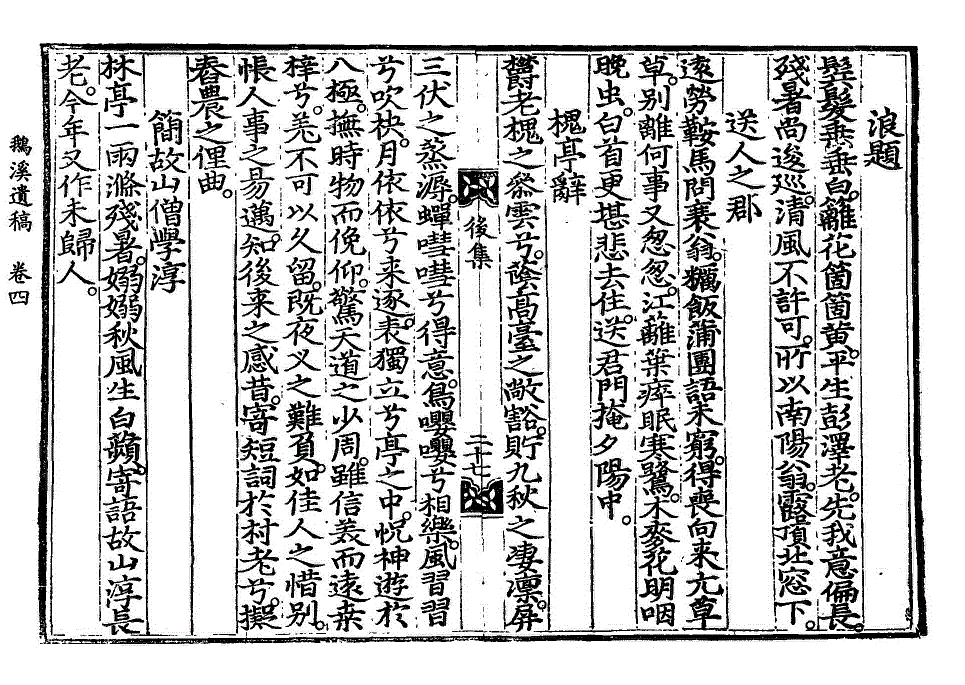 浪題
髮垂垂白。籬花箇箇黃。平生彭澤老。先我意偏長。
殘暑尚逡巡。清風不許可。所以南陽翁。露頂北窓下。
送人之郡
遠勞鞍馬問衰翁。糲飯蒲團語未窮。得喪向來亢草
草。別離何事又忽忽。江蘺葉瘁眠寒鷺。木麥花明咽
晚虫。白首更堪悲去住。送君門掩夕陽中。
槐亭辭
欝老槐之叅雲兮。蔭高臺之敞豁。貯九秋之凄凛。屏
三伏之蒸溽。蟬嘒嘒兮得意。鳥嚶嚶兮相樂。風習習
兮吹袂。月依依兮來逐。表獨立兮亭之中。怳神遊於
八極。撫時物而俛仰。驚天道之少周。雖信羙而遠桒
梓兮。羌不可以久留。旣夜叉之難負。如佳人之惜別。
悵人事之易邁。知後來之感昔。寄短詞於村老兮。擬
舂農之俚曲。
簡故山僧學淳
林亭一雨滌殘暑。嫋嫋秋風生白蘋。寄語故山淳長
老。今年又作未歸人。
後集
二十七
鵝溪遺稿 卷四